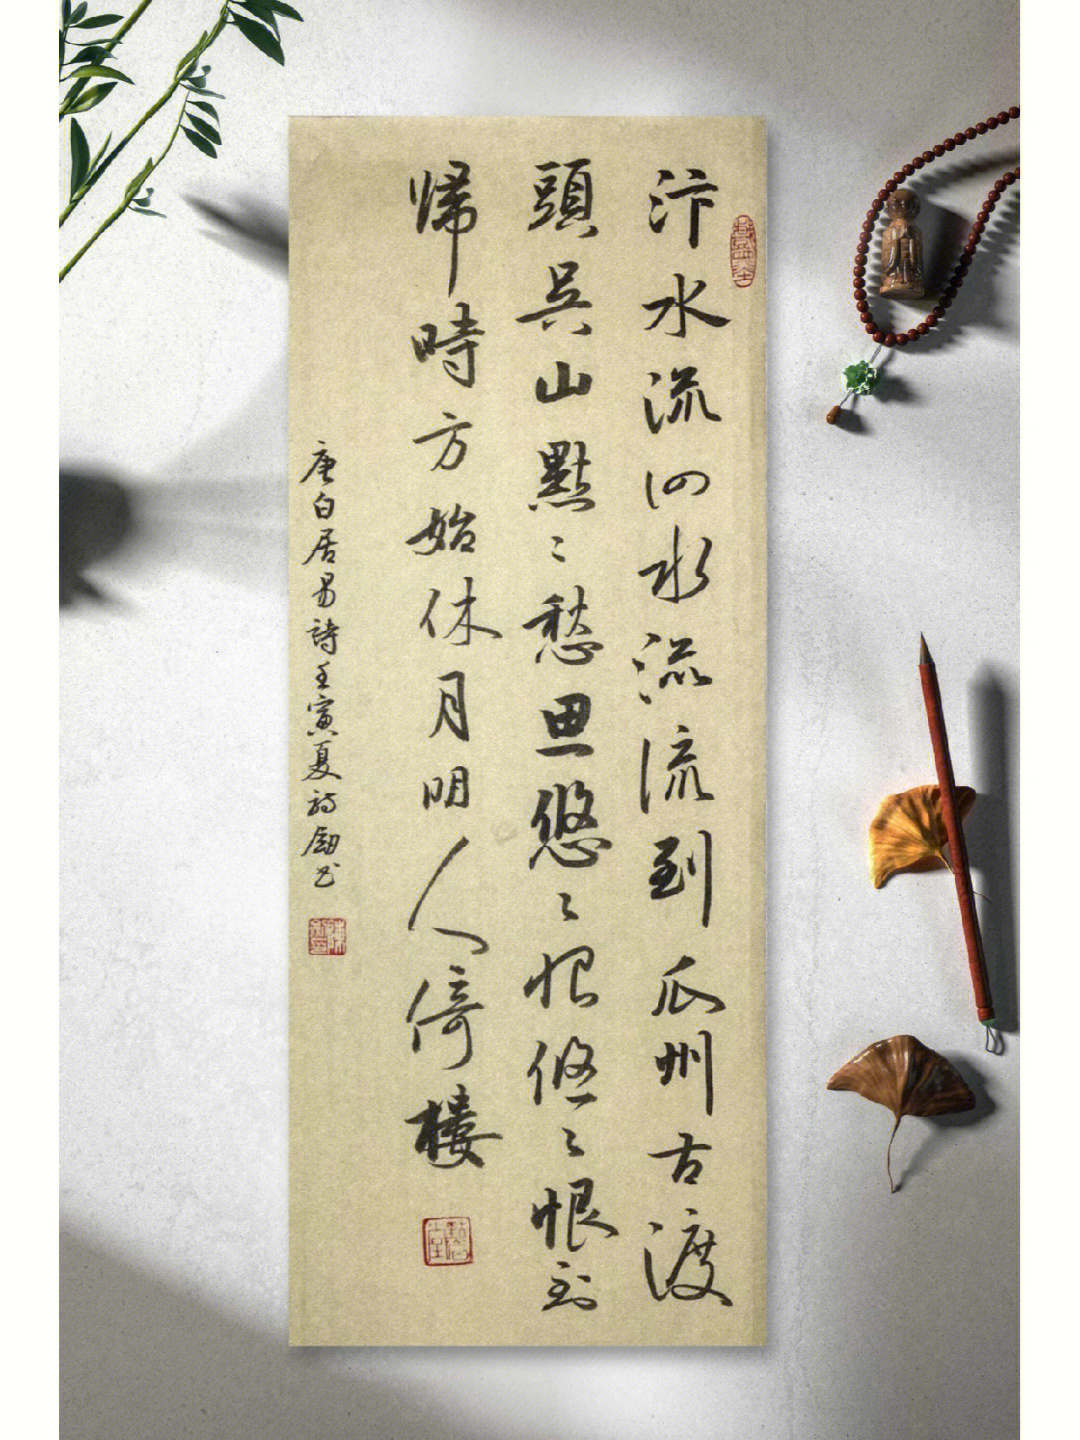 汴水流泗水流流到瓜州古渡
頭吳山點〻愁思悠〻恨悠〻恨到
歸時方始休月明人倚樓
唐白居易詩壬寅夏书